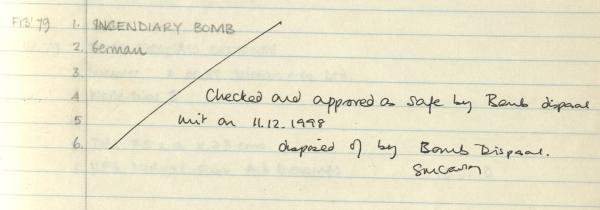 F13'79 1. INCENDIARY BOMB
2. German
3.
4 Checked and approved as safe by Bomb disposal
5 unit on 11.12.1998
6. disposed of by Bomb Disposal.